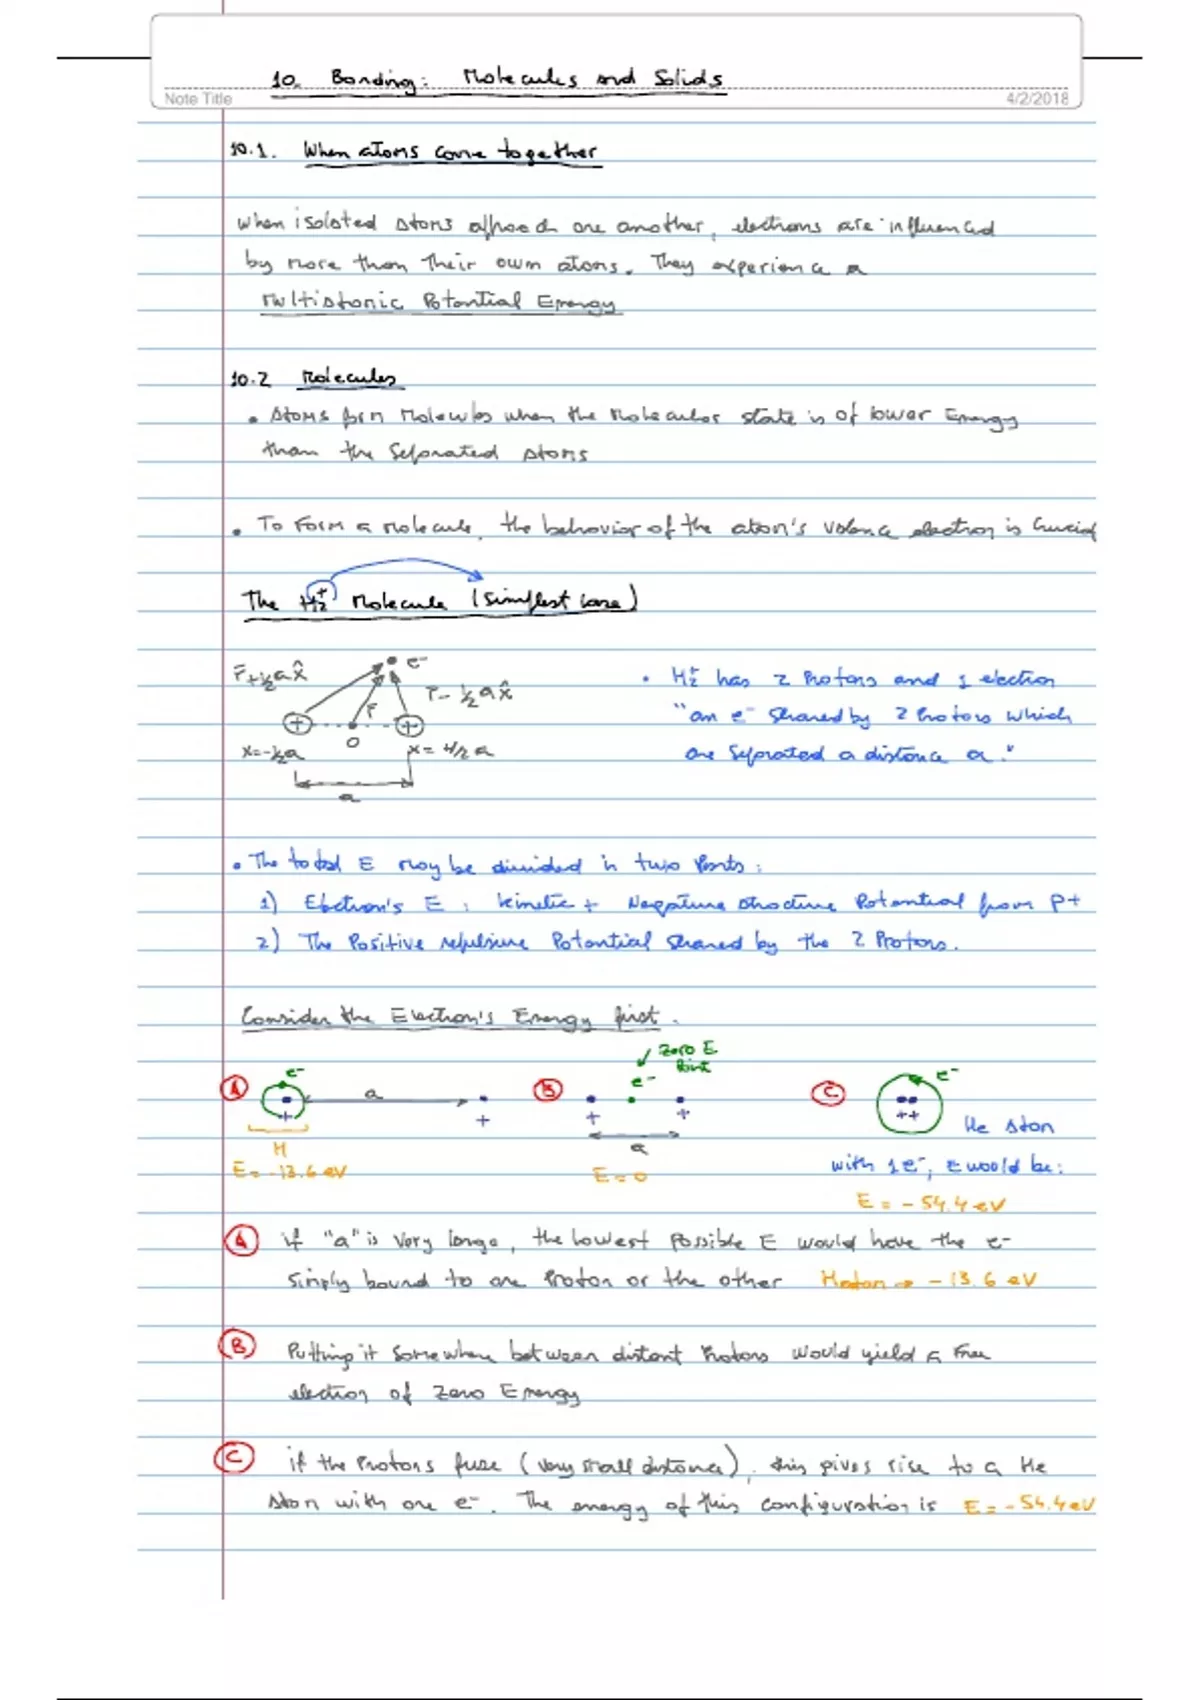 10. Bonding: Molecules and Solids
Note Title
4/2/2018
10.1. When atoms come together
when isolated atoms approach one another, electrons are influenced
by more than their own atoms. They experience a
Multiatomic Potential Energy
10.2 Molecules
• Atoms form Molecules when the Molecular state is of lower Energy
than the separated atoms
• To Form a molecule, the behavior of the atom's valence electron is Crucial
The H₂⁺ Molecule (simplest case)
r̄+½ax̂
e⁻
r̄-½ax̂
r̄
+
+
x=-½a
0
x=+½a
a
• H₂⁺ has 2 Protons and 1 electron
"an e⁻ shared by 2 Protons which
are separated a distance a."
• The total E may be divided in two Parts:
1) Electron's E: kinetic + Negative attractive Potential from P+
2) The Positive repulsive Potential shared by the 2 Protons.
Consider the Electron's Energy first.
A
e⁻
+
a
+
H
E=-13.6 eV
B
Zero E
Point
e⁻
+
+
a
E=0
C
e⁻
++
He atom
with 1e⁻, E would be:
E = -54.4 eV
A if "a" is very large, the lowest possible E would have the e⁻
simply bound to one Proton or the other H atom → -13.6 eV
B Putting it somewhere between distant Protons would yield a Free
electron of Zero Energy
C if the Protons fuse (very small distance), this gives rise to a He
atom with one e⁻. The energy of this configuration is E=-54.4 eV